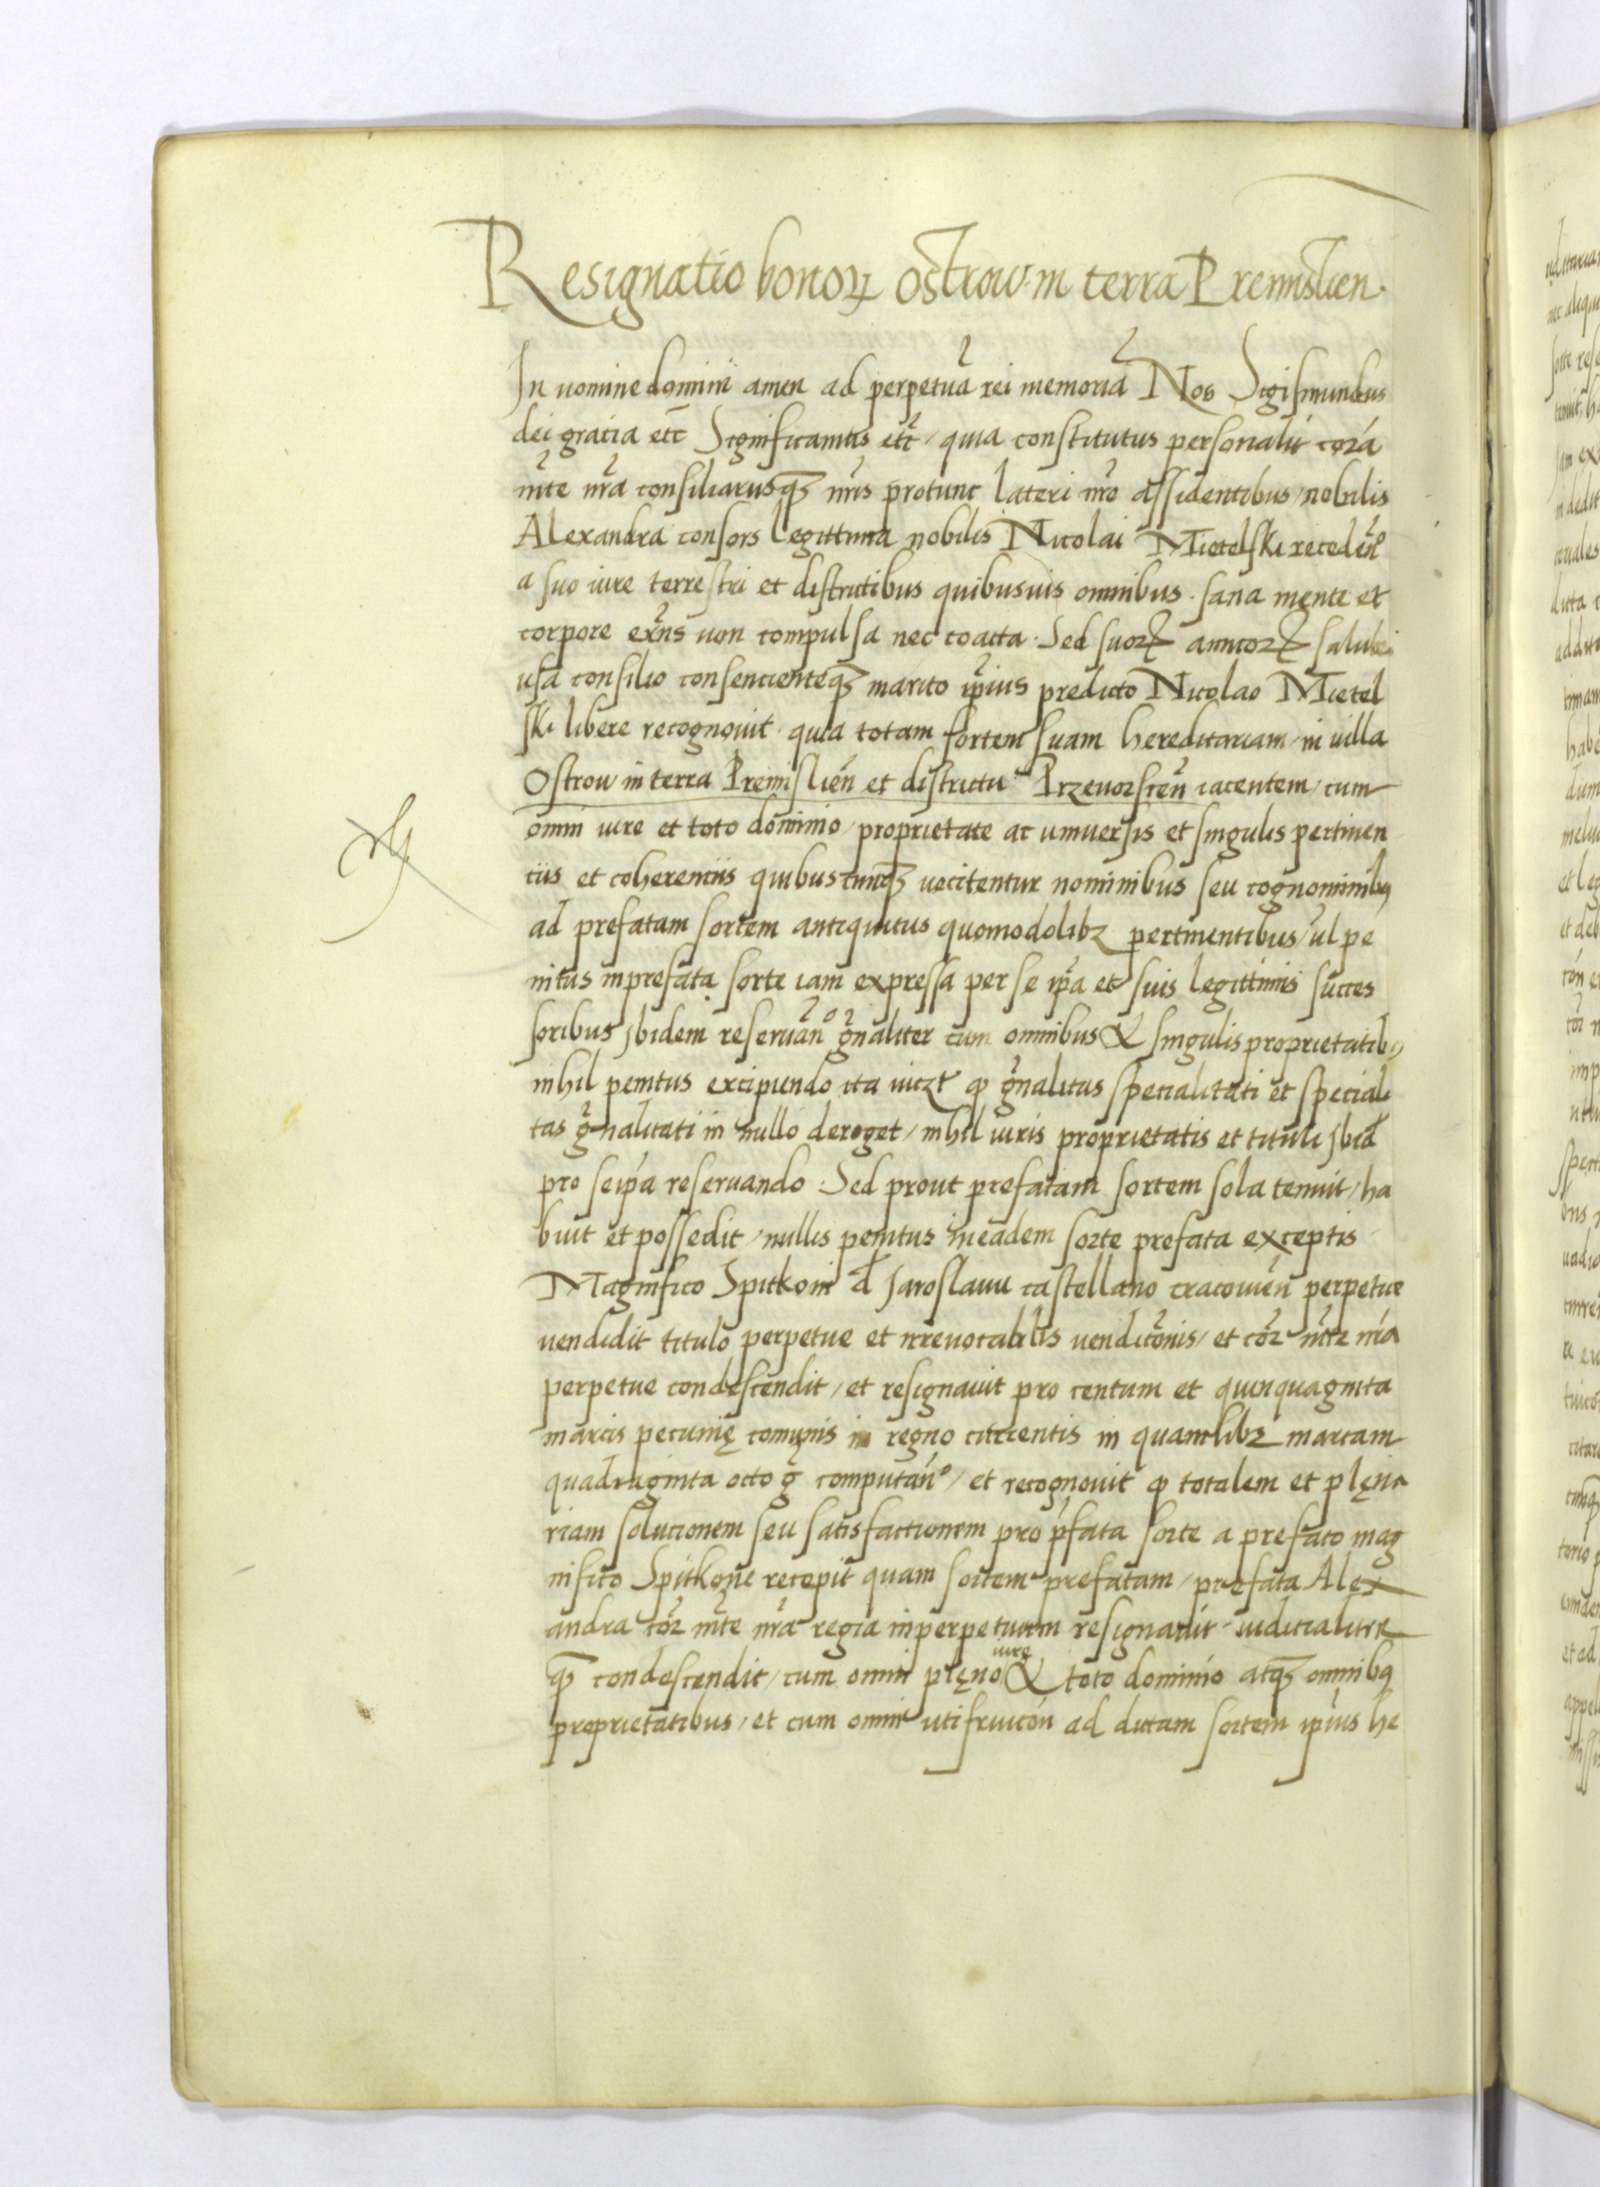 Resignatio bonoꝝ Ostrow in terra Premislien.
In nomine domini amen ad perpetuā rei memoriā Nos Sigismundus
dei gracia etc̄ Significamus etc̄ / quia constitutus personalit̄ corā
mte nr̄a consiliarusqꝫ nr̄is protunc lateri nr̄o assidentibus / nobilis
Alexandra consors legittima nobilis Nicolai Mietelski recedeñ
a suo iure terrestri et districtibus quibusuis omnibus . sana mente et
corpore exñs non compulsa nec coacta . Sed suorꝝ amicorꝝ salubri
usa consilio consencienteqꝫ marito ip̄ius predicto Nicolao Mietel
ski libere recognouit quia totam sortem suam hereditariam / in uilla
Ostrow in terra Premislień et districtu Przeuorsceñ iacentem / cum
omni iure et toto dominio / proprietate ac uniuersis et singulis pertinen
ciis et coherenciis quibuscunqꝫ uocitentur nominibus seu cognominibꝫ
ad prefatam sortem antiquitus quomodolibꝫ pertinentibus / ul pe
nitus in prefata sorte iam expressa per se ip̄a et suis legittimis succes
soribus ibidem reseruañ gn̄aliter cum omnibus & singulis proprietatibꝫ
nihil penitus excipiendo ita uiczt ꝙ gn̄alitas specialitati et speciali
tas gn̄alitati in nullo deroget / nihil iuris proprietatis et tituli ibid̄
pro seip̄a reseruando . Sed prout prefatam sortem sola tenuit / ha
buit et possedit / nullis penitus in eadem sorte prefata exceptis
Magnifico Spitkoni d̄ Jaroslauu castellano cracouień perpetue
uendidit titulo perpetue et irreuocabilis uendicōnis / et cor̄ mte nr̄a
perpetue condescendit / et resignauit pro centum et quinquaginta
marcis pecunię comunis in regno currentis in quamlibꝫ marcam
quadraginta octo ḡ computań / et recognouit ꝙ totalem et plęna
riam solucionem seu satisfactionem pro p̄fata sorte a prefato mag
nifico Spitkone recepit quam sortem prefatam / prefata Alex
andra cor̄ mte nr̄a regia in perpetuum resignauit iudicialiter
qꝫ condescendit / cum omni plęno iure & toto dominio atqꝫ omnibꝫ
proprietatibus / et cum omni utifruicoń ad dictam sortem ip̄ius he